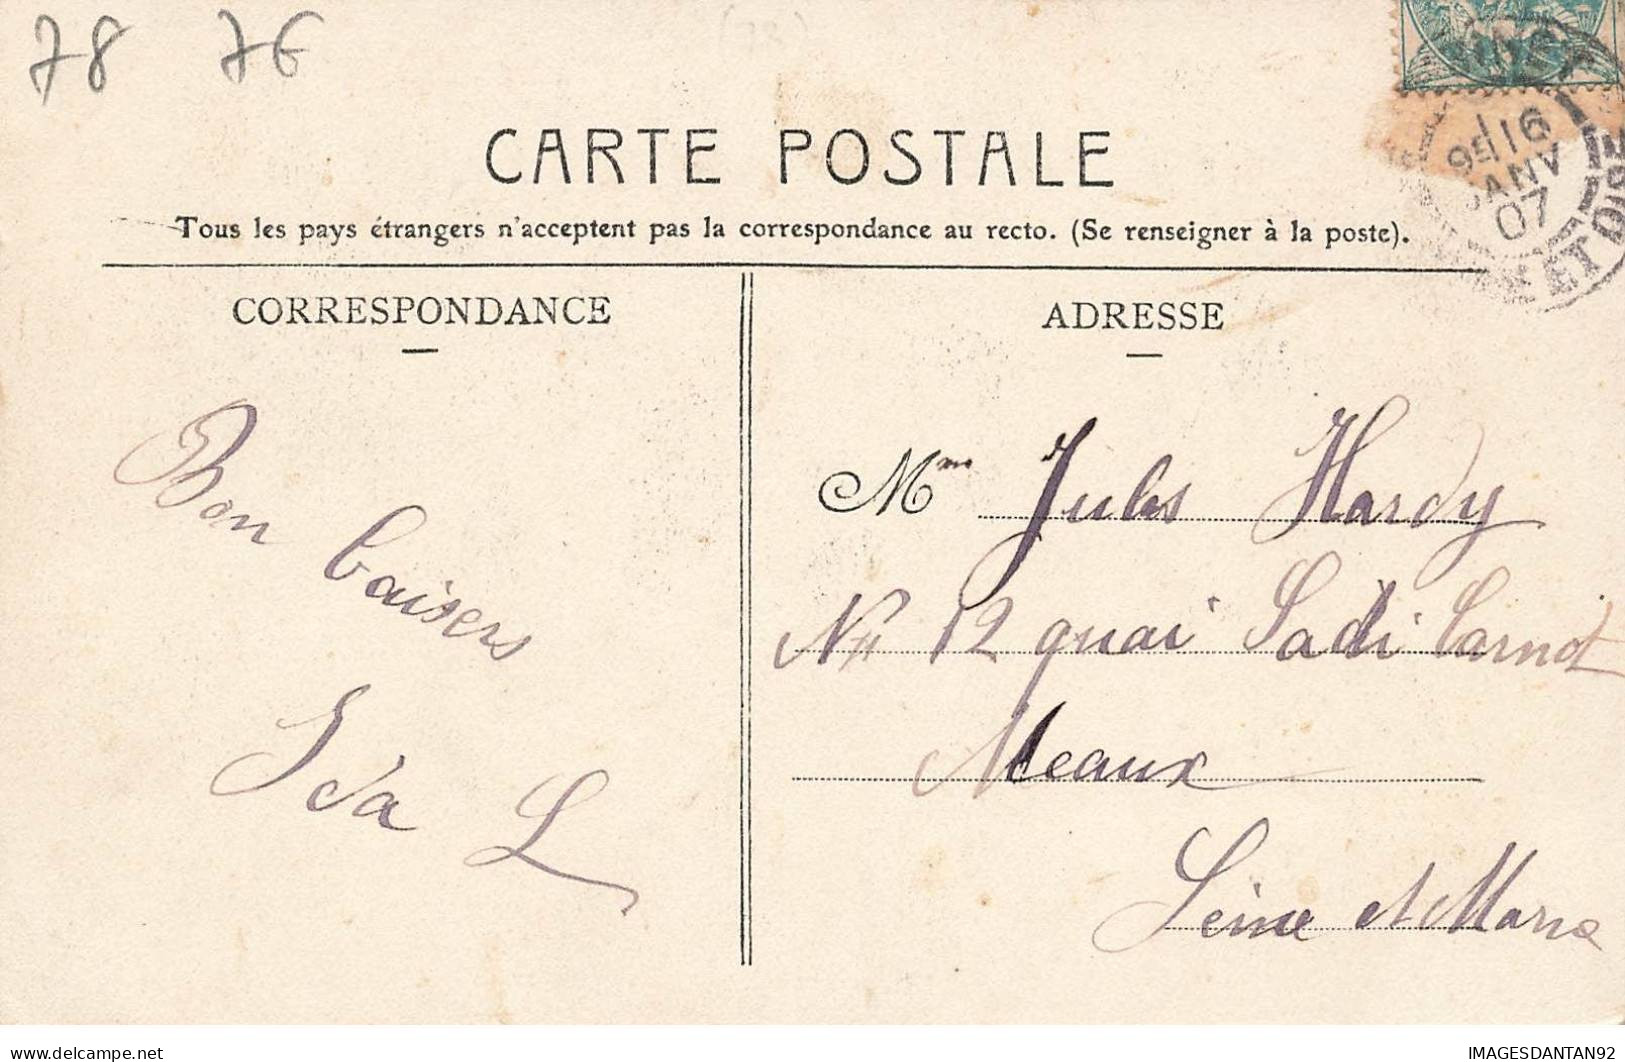 78 76
(72)
CARTE POSTALE
Tous les pays étrangers n'acceptent pas la correspondance au recto. (Se renseigner à la poste).
9E 16
JANV
07
ET
CORRESPONDANCE
ADRESSE
Bon baisers
L
Mme Jules Hardy
No 12 quai Sadi Carnot
Meaux
Seine et Marne
delcampe.net
IMAGESDANTAN92